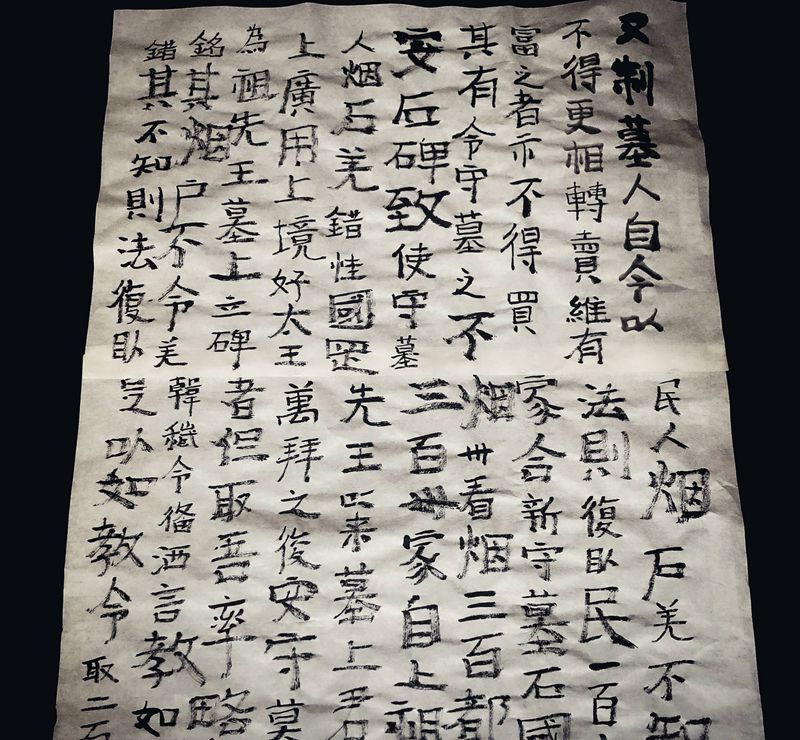 又制墓人自今以民人烟石羌不知
不得更相轉賣維有法則復臥民一百
富之者亦不得買家合新守墓石國
其有令守墓之不烟卅看烟三百都
安石碑致使守墓三百卅家自上祖
人烟石羌錯性國罡先王以来墓上石
上廣用上境好太王萬拜之後安守墓
為祖先王墓上立碑者但取吾率略
銘其烟戶不令羌韓穢令俻洒言教如
錯其不知則法復臥旨以如教令取二石